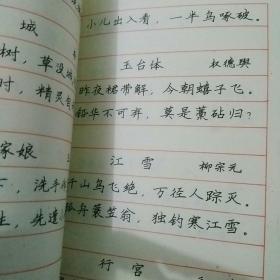 城
树，草没
时，精灵
家娘
洗手
生，先遣
小儿出入看，一半鸟啄破。
玉台体 权德舆
昨夜裙带解，今朝蟢子飞。
铅华不可弃，莫是藁砧归？
江雪 柳宗元
千山鸟飞绝，万径人踪灭。
孤舟蓑笠翁，独钓寒江雪。
行宫